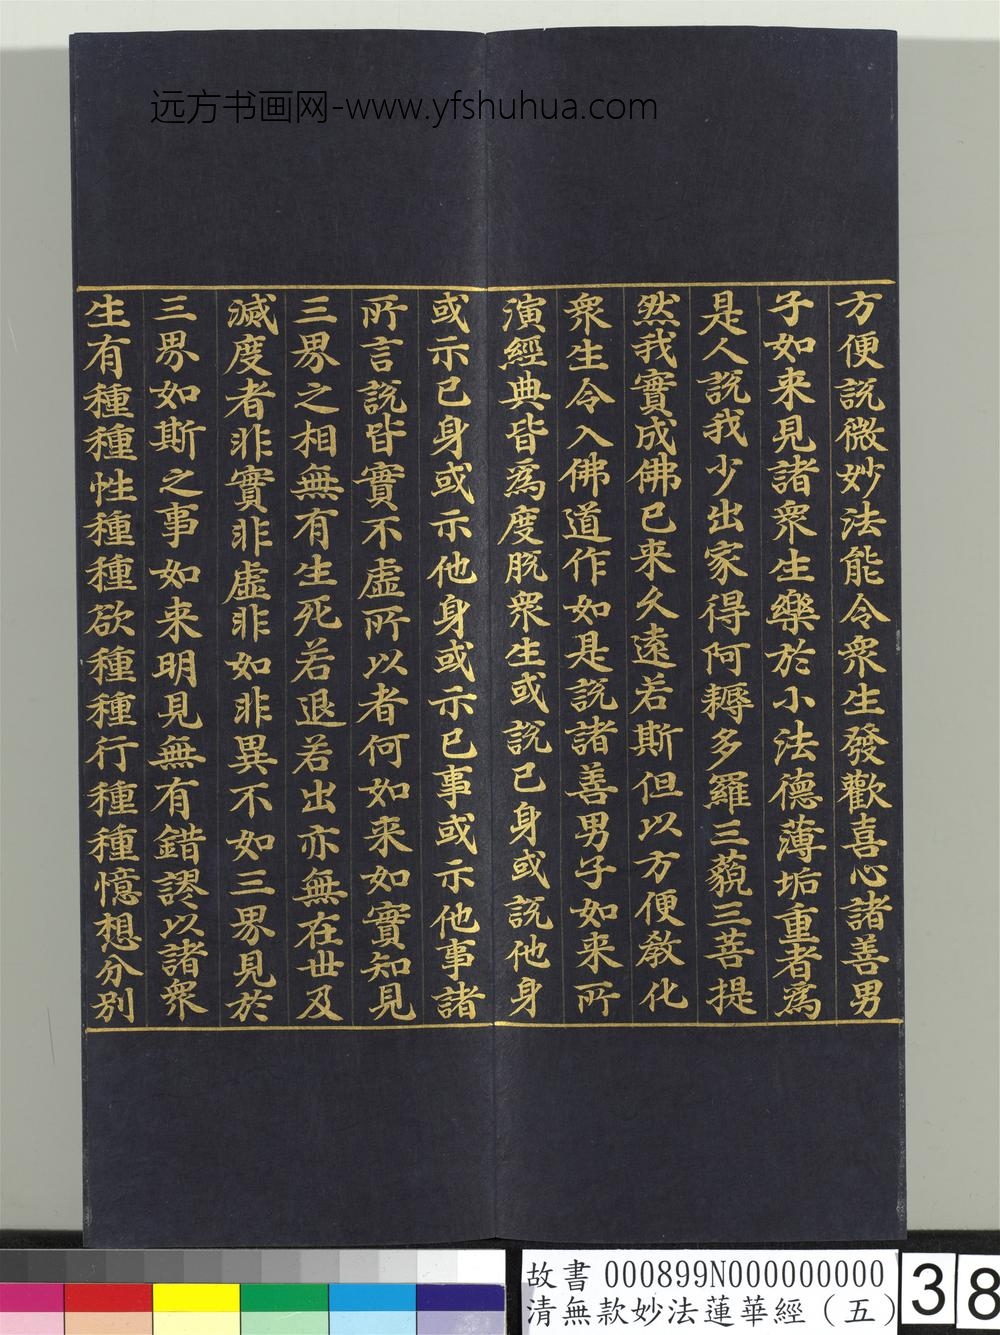 远方书画网-www.yfshuhua.com
方便說微妙法能令衆生發歡喜心諸善男
子如来見諸衆生樂於小法德薄垢重者爲
是人說我少出家得阿耨多羅三藐三菩提
然我實成佛已来久遠若斯但以方便教化
衆生令入佛道作如是說諸善男子如来所
演經典皆爲度脱衆生或說己身或說他身
或示己身或示他身或示己事或示他事諸
所言說皆實不虛所以者何如来如實知見
三界之相無有生死若退若出亦無在世及
滅度者非實非虛非如非異不如三界見於
三界如斯之事如来明見無有錯謬以諸衆
生有種種性種種欲種種行種種憶想分别
故書 000899N000000000
清無款妙法蓮華經（五）
38